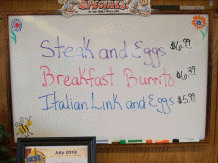 Specials
Steak and Eggs $6.99
Breakfast Burrito $6.29
Italian Link and Eggs $5.99
July 2010